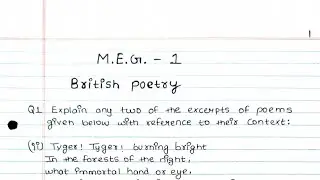 1
M.E.G. - 1
British poetry
Q1 Explain any two of the excerpts of poems
given below with reference to their context:
(ii) Tyger! Tyger! burning bright
In the forests of the night,
what immortal hand or eye,